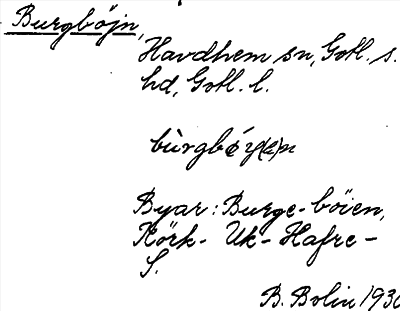 Burgböjn,
Havdhem sn, Gotl. s.
hd, Gotl. l.
Byar: Burge-böien,
Körk- Uk- Hafre-
S.
B. Bolin 1930